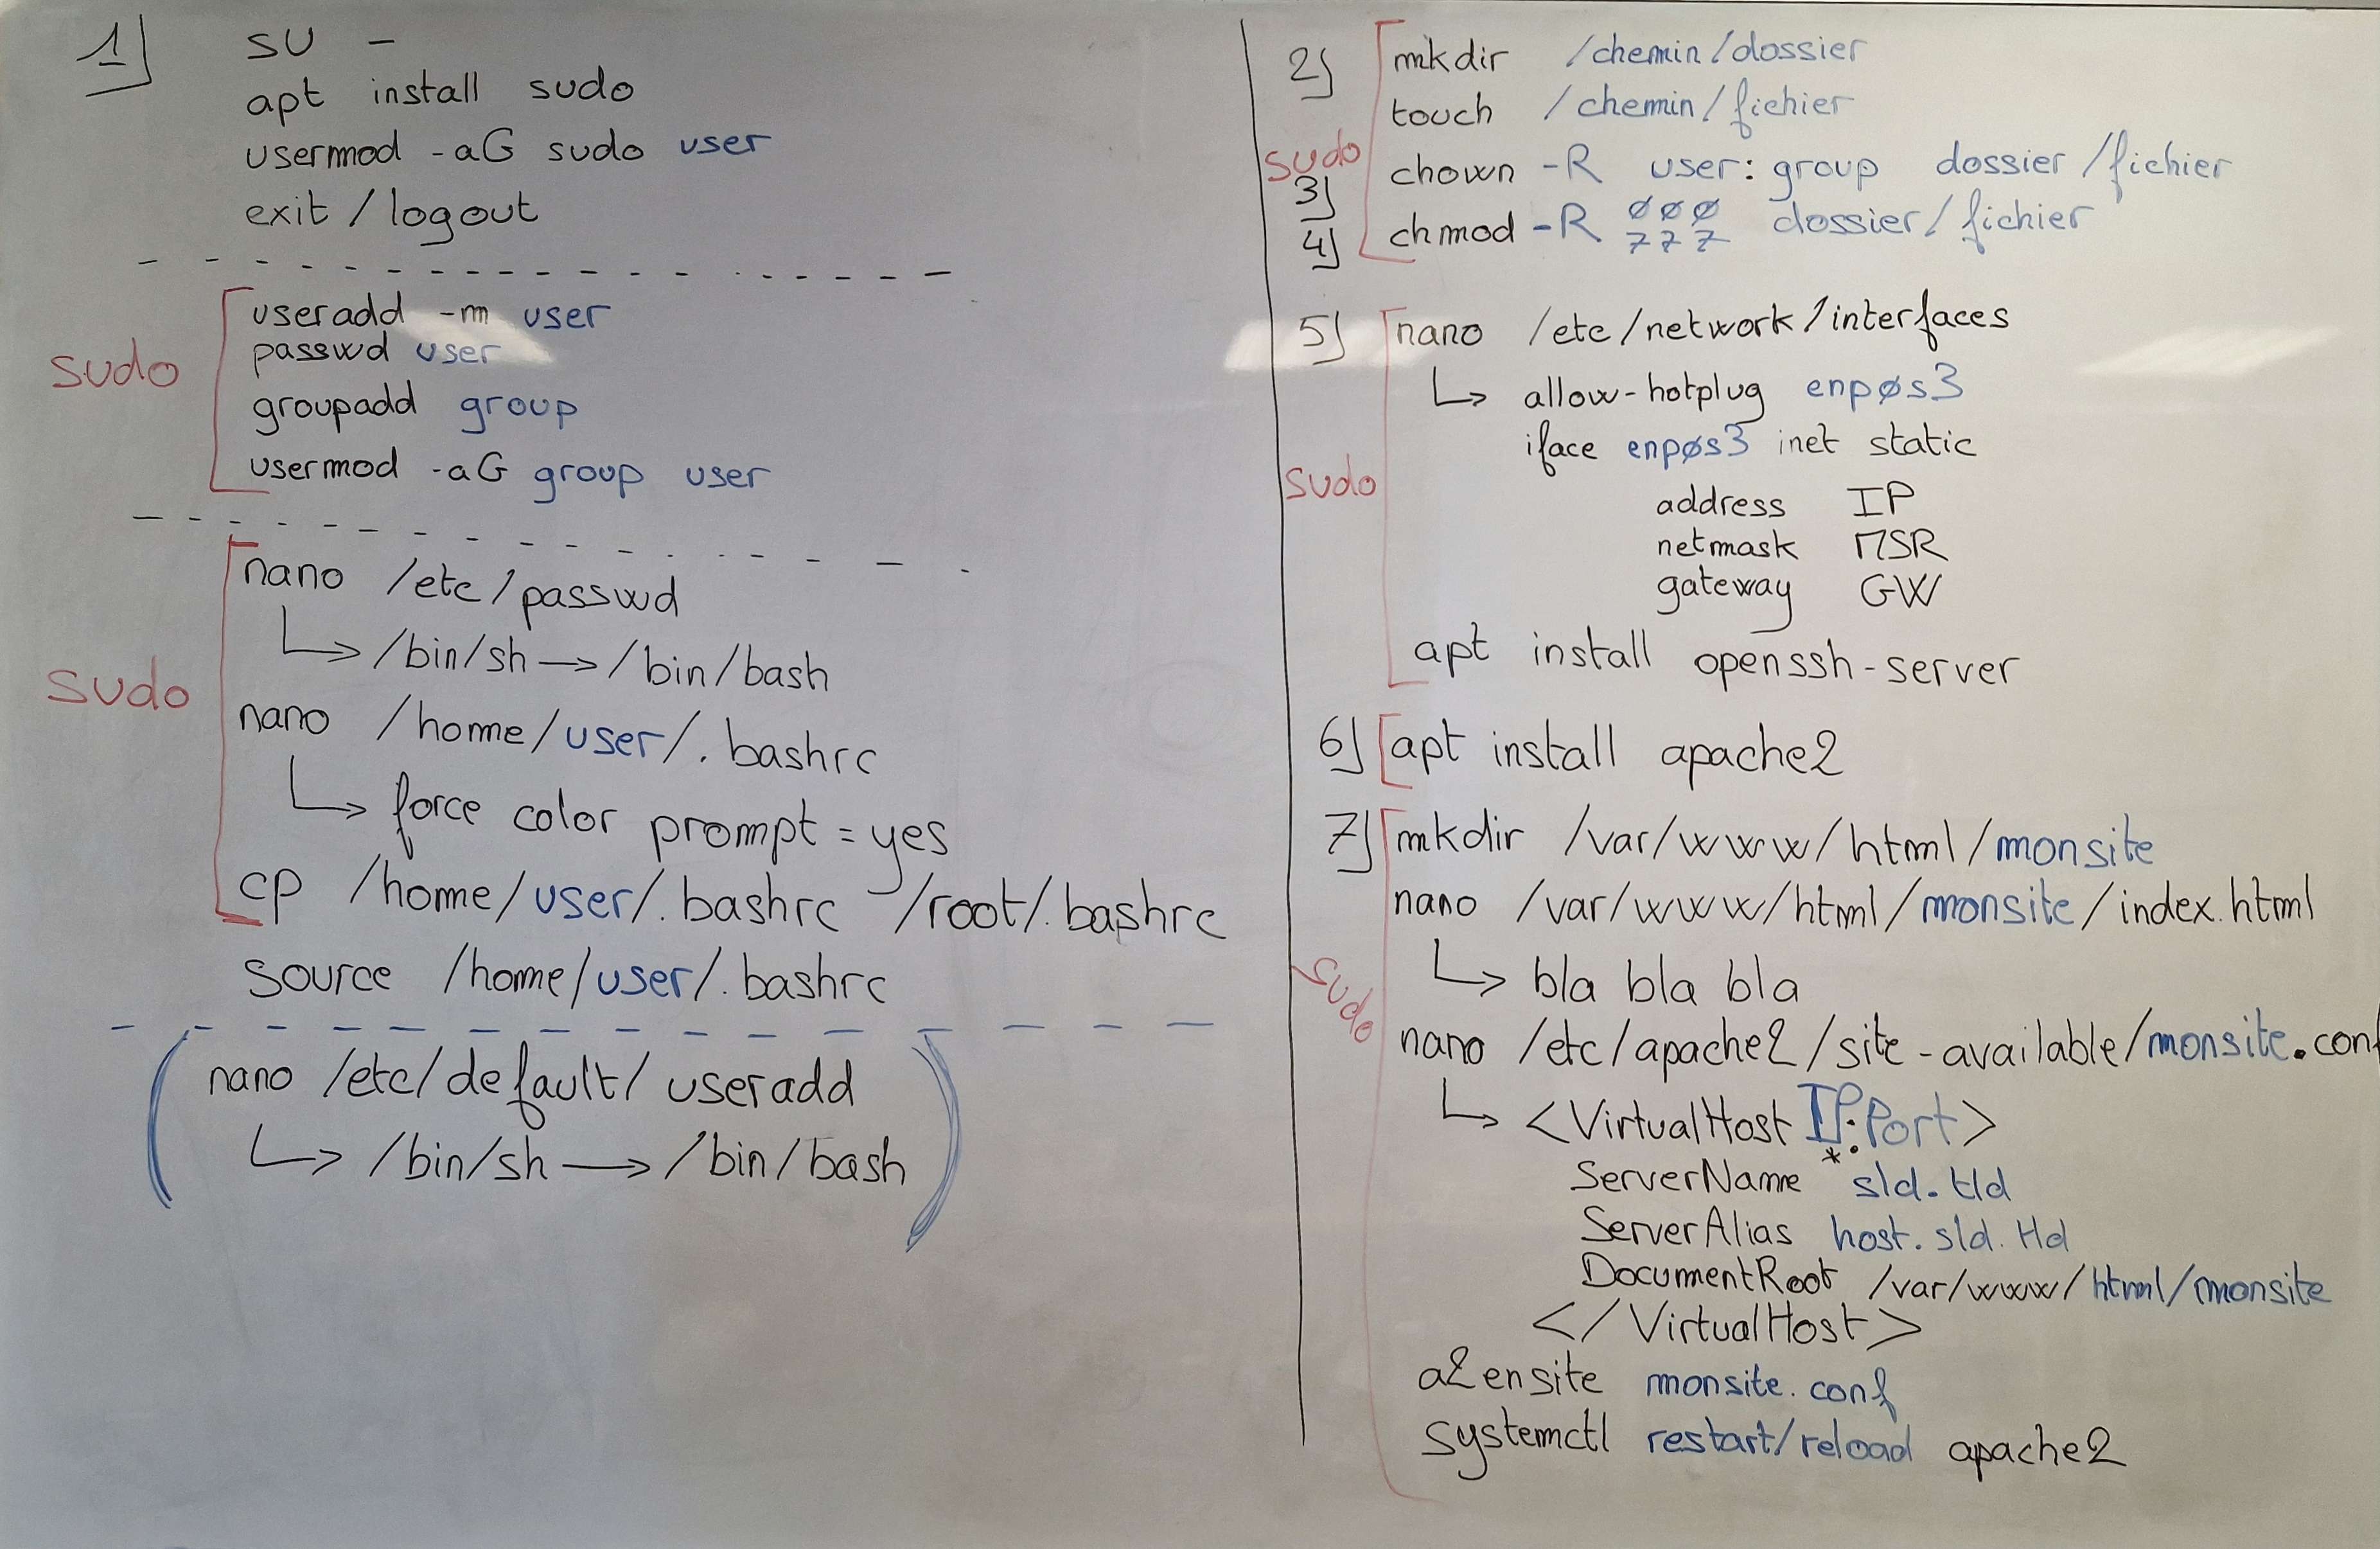 1]
su -
apt install sudo
usermod -aG sudo user
exit / logout
sudo
useradd -m user
passwd user
groupadd group
usermod -aG group user
sudo
nano /etc/passwd
↳ /bin/sh → /bin/bash
nano /home/user/.bashrc
↳ force color prompt = yes
cp /home/user/.bashrc /root/.bashrc
source /home/user/.bashrc
( nano /etc/default/useradd
↳ /bin/sh → /bin/bash )
2]
mkdir /chemin/dossier
touch /chemin/fichier
sudo
3]
chown -R user:group dossier/fichier
4]
chmod -R ØØØ dossier/fichier
777
5] nano /etc/network/interfaces
↳ allow-hotplug enpøs3
iface enpøs3 inet static
sudo
address IP
netmask MSR
gateway GW
apt install openssh-server
6] apt install apache2
7] mkdir /var/www/html/monsite
nano /var/www/html/monsite/index.html
↳ bla bla bla
sudo
nano /etc/apache2/site-available/monsite.conf
↳ <VirtualHost IP:Port>
*:
ServerName sld.tld
ServerAlias host.sld.tld
DocumentRoot /var/www/html/monsite
</VirtualHost>
a2ensite monsite.conf
systemctl restart/reload apache2